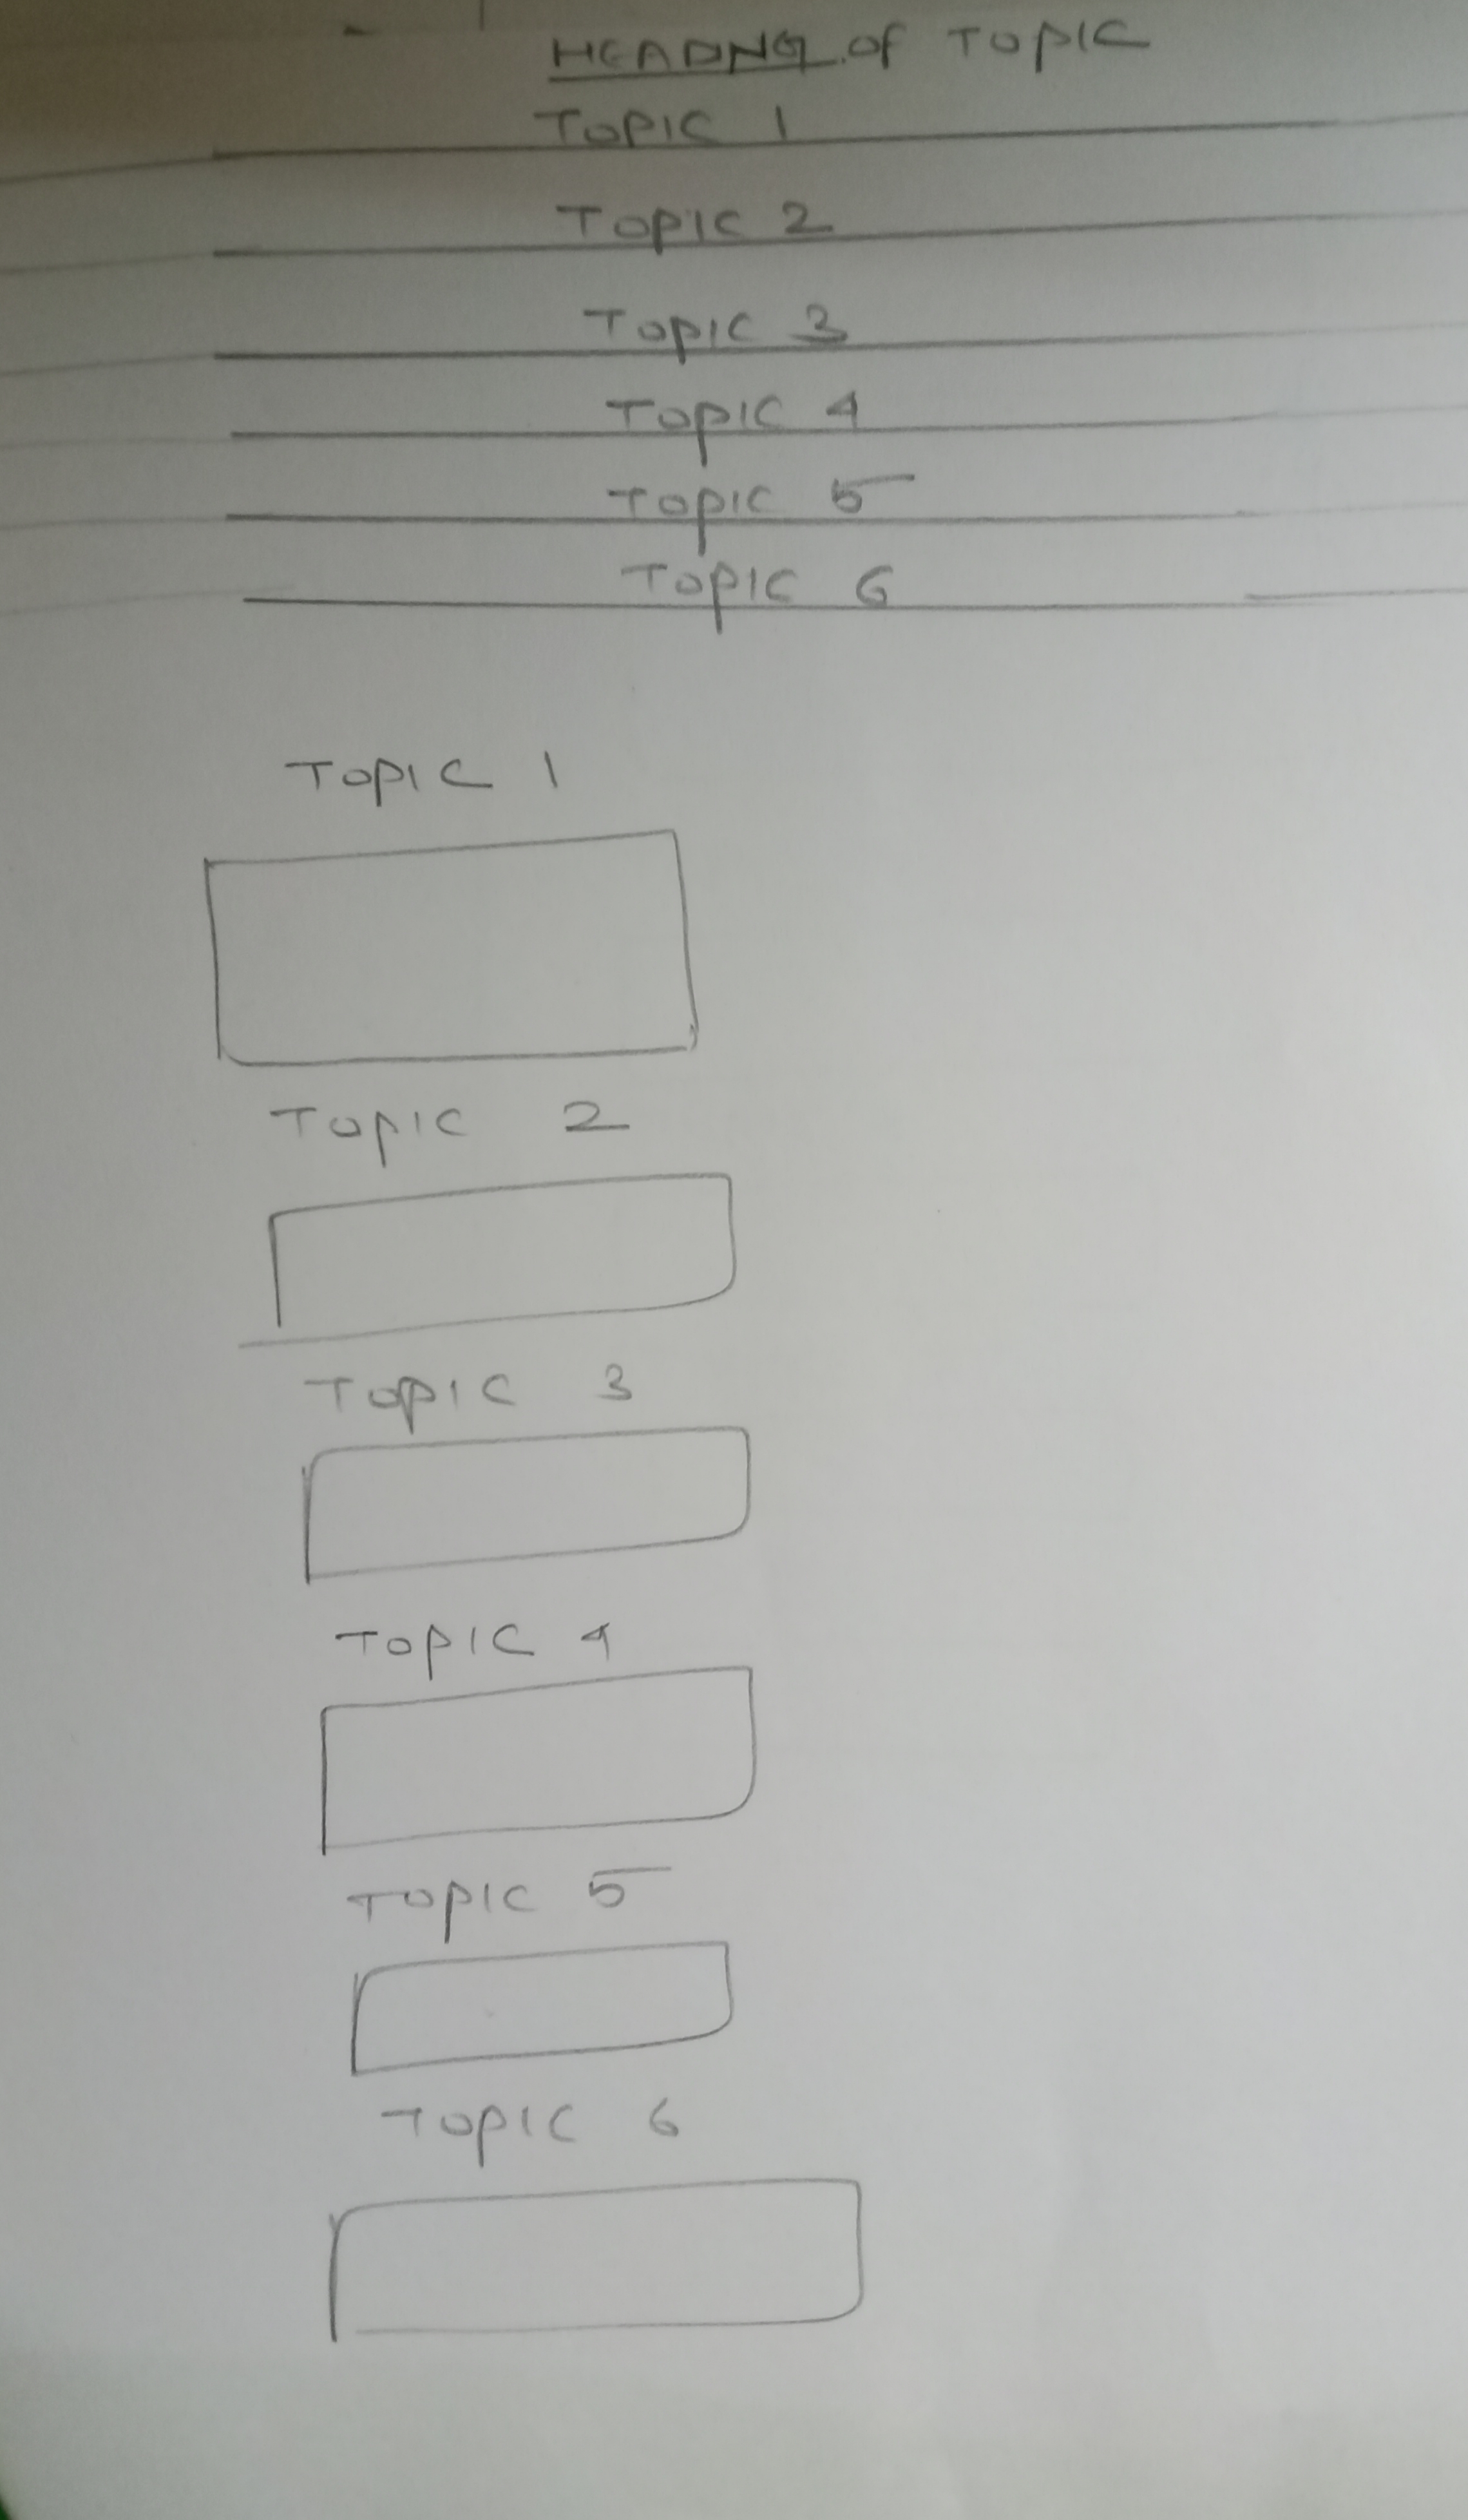 HEADNG of TOPIC
TOPIC 1
TOPIC 2
TOPIC 3
TOPIC 4
TOPIC 5
TOPIC 6
TOPIC 1
TOPIC 2
TOPIC 3
TOPIC 4
TOPIC 5
TOPIC 6